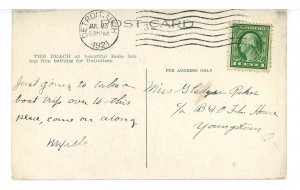 POST CARD
DETROIT, MICH.
JUL 23
5 PM
1921
THE BEACH at beautiful Belle Isle
has free bathing for Detroiters
FOR ADDRESS ONLY
Just going to take a
boat trip over to this
place, come on along
Myrtle
Miss Gladys
c/o B & O House
Youngstown
O
1 CENT 1